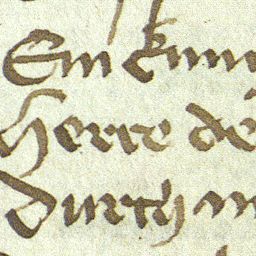 Ein kun
herre de
durch m